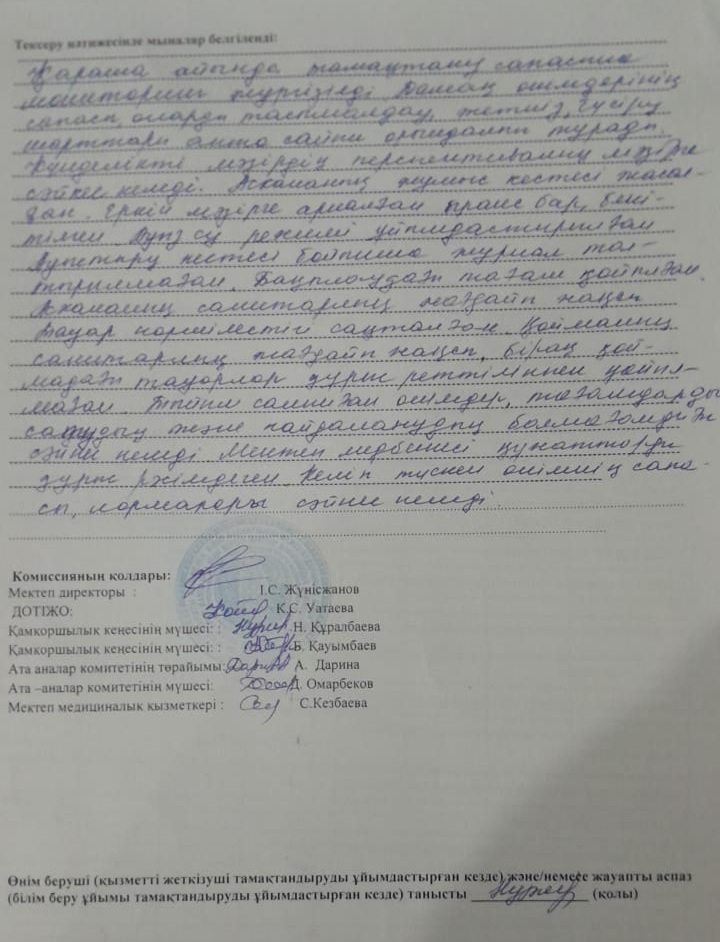 Тексеру нәтижесінде мыналар белгіленді:
Қараша айында тамақтану сапасына
мониторинг жүргізілді. Тамақ өнімдерінің
сапасы, оларды тасымалдау, жеткізу, түсіру
шарттары апта сайын орындалып тұрады.
Күнделікті мәзірдің перспективалық мәзірге
сәйкес келеді. Асхананың жұмыс кестесі жасал-
ған. Еркін мәзірге арналған прайс бар, бекі-
тілген. Ауыз су режимі ұйымдастырылған
кестесі бойынша журнал тол-
тырылмаған. Бақылаудағы тағам қойылған.
Асхананың санитарлық жағдайы жақсы
Тауар көршілестігі сақталған. Қойманың
санитарлық жағдайы жақсы, бірақ қой-
мадағы тауарлар дұрыс реттілікпен қойыл-
маған. Тыйым салынған өнімдер, тағамдарды
сатудың және пайдаланудың болмағандығы
сәйкес келеді. Мектеп медбикесі құжаттарды
дұрыс рәсімдеген. Келіп түскен өнімнің сапа-
сы, нормалары сәйкес келеді.
Комиссияның қолдары:
Мектеп директоры : І.С. Жүнісжанов
ДОТІЖО: К.С. Уатаева
Қамкоршылық кеңесінің мүшесі: : Н. Құралбаева
Қамкоршылық кеңесінің мүшесі: : Б. Қауымбаев
Ата аналар комитетінің төрайымы: А. Дарина
Ата –аналар комитетінің мүшесі: Д. Омарбеков
Мектеп медициналық қызметкері : С.Кезбаева
Өнім беруші (қызметті жеткізуші тамақтандыруды ұйымдастырған кезде) және/немесе жауапты аспаз
(білім беру ұйымы тамақтандыруды ұйымдастырған кезде) танысты (қолы)